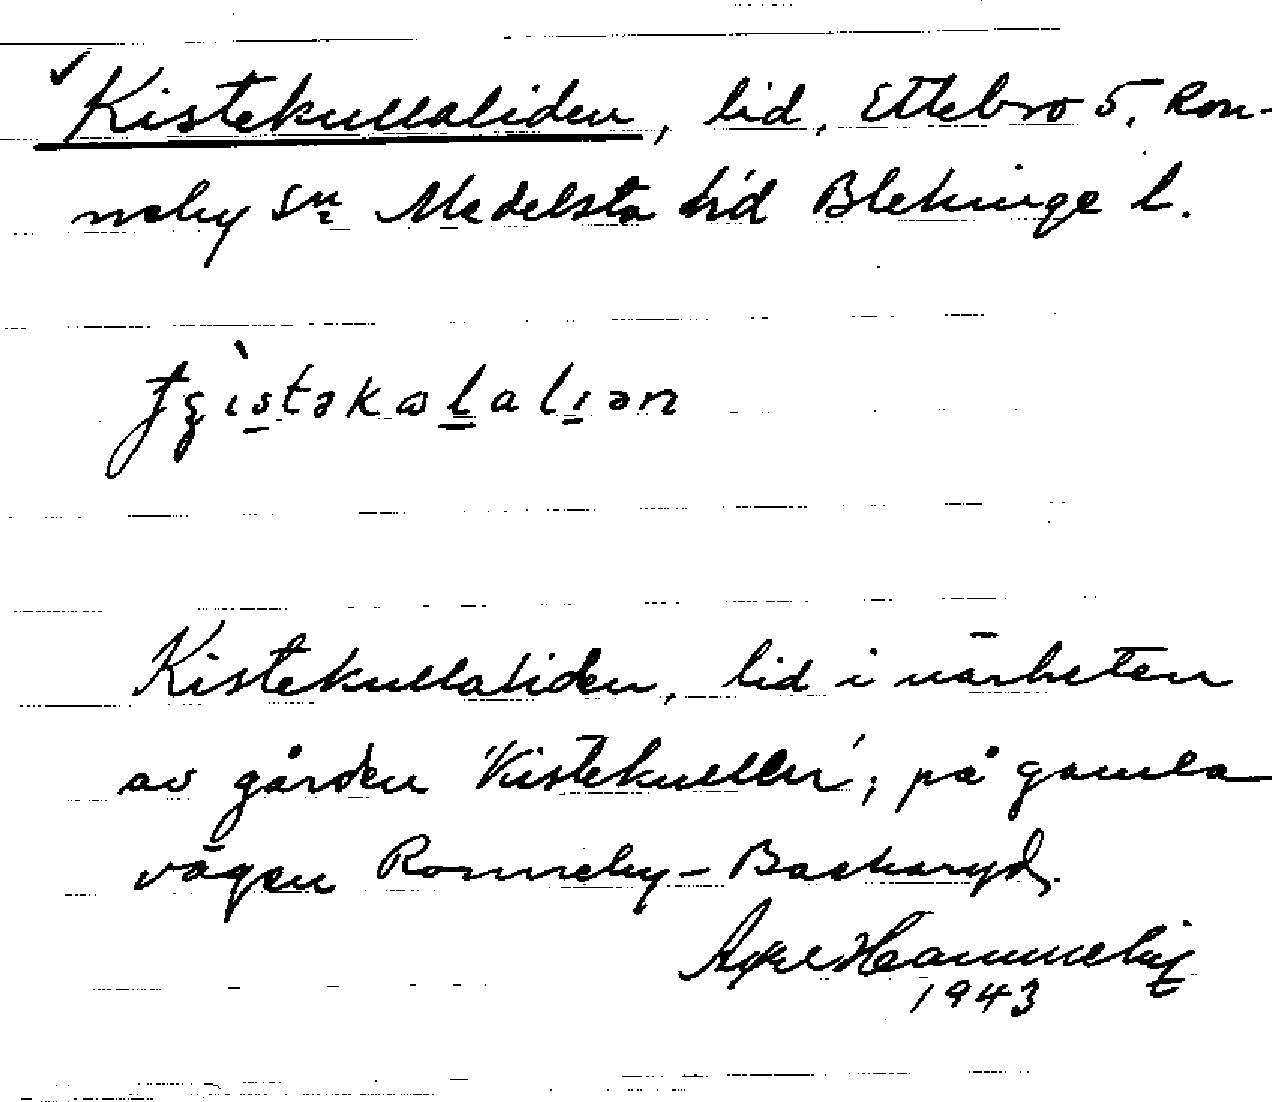 Kistekullaliden, lid, Ettebro 5, Ron-
neby sn Medelsta hd Blekinge l.
Kistekullaliden, lid i närheten
av gården 'Kistekullen', på gamla
vägen Ronneby - Backaryd.
Axel Hammeby
1943